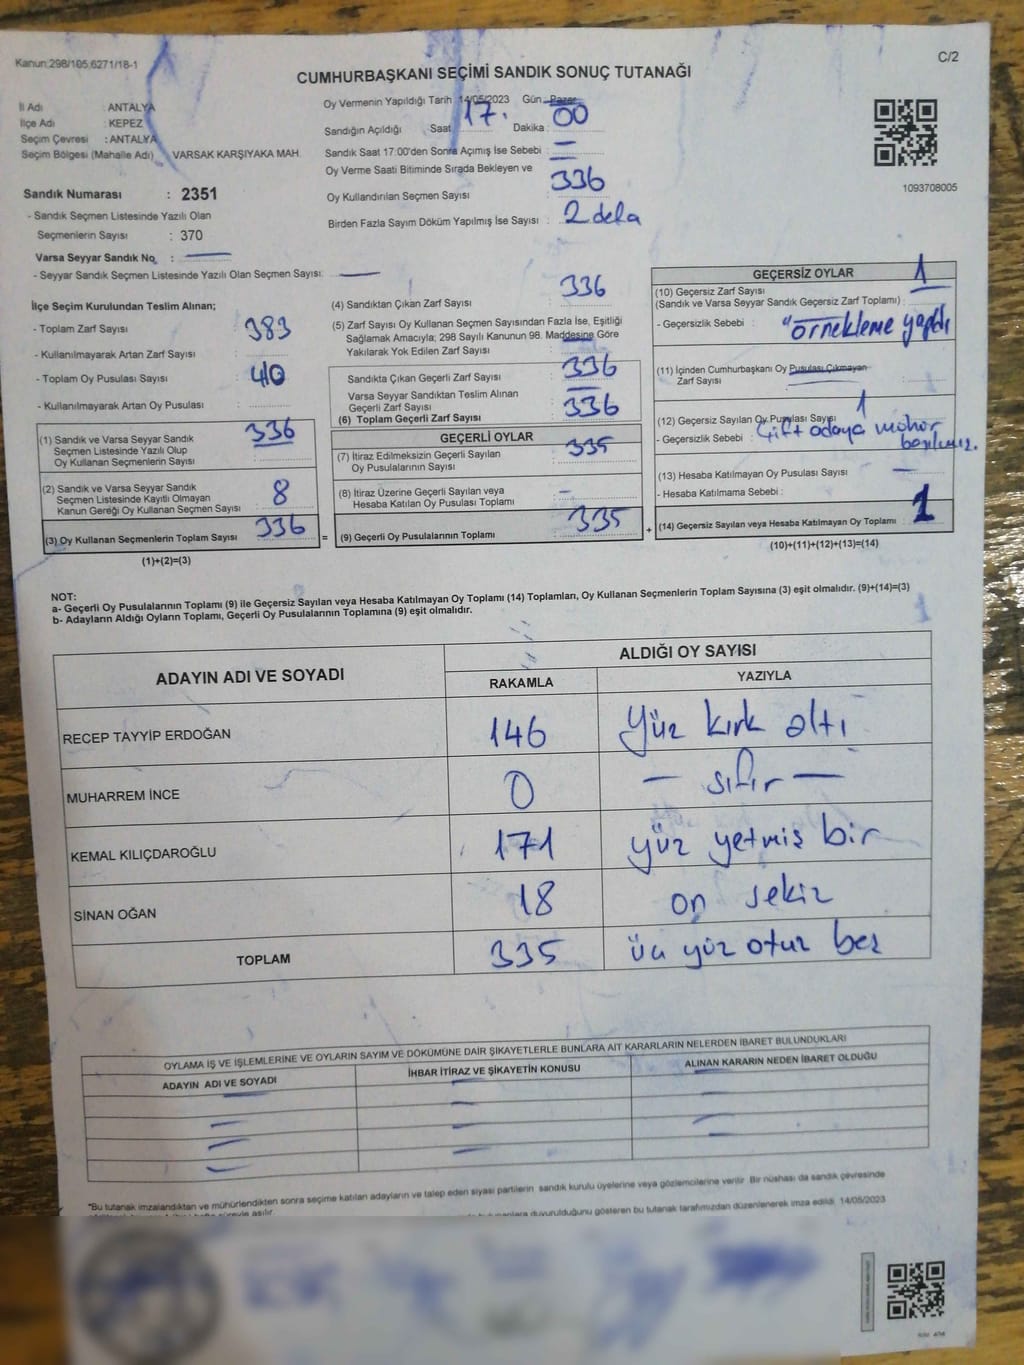 Kanun:298/105,6271/18-1
C/2
CUMHURBAŞKANI SEÇİMİ SANDIK SONUÇ TUTANAĞI
İl Adı : ANTALYA
İlçe Adı : KEPEZ
Seçim Çevresi : ANTALYA
Seçim Bölgesi (Mahalle Adı) VARSAK KARŞIYAKA MAH.
Sandık Numarası : 2351
- Sandık Seçmen Listesinde Yazılı Olan
Seçmenlerin Sayısı : 370
Varsa Seyyar Sandık No :
- Seyyar Sandık Seçmen Listesinde Yazılı Olan Seçmen Sayısı:
Oy Vermenin Yapıldığı Tarih 14/05/2023 Gün Pazar
Sandığın Açıldığı Saat 17. Dakika 00
Sandık Saat 17:00'den Sonra Açımış İse Sebebi :
Oy Verme Saati Bitiminde Sırada Bekleyen ve
Oy Kullandırılan Seçmen Sayısı : 336
Birden Fazla Sayım Döküm Yapılmış İse Sayısı : 2 defa
1093708005
İlçe Seçim Kurulundan Teslim Alınan;
- Toplam Zarf Sayısı : 383
- Kullanılmayarak Artan Zarf Sayısı :
- Toplam Oy Pusulası Sayısı : 410
- Kullanılmayarak Artan Oy Pusulası :
(1) Sandık ve Varsa Seyyar Sandık
Seçmen Listesinde Yazılı Olup
Oy Kullanan Seçmenlerin Sayısı : 336
(2) Sandık ve Varsa Seyyar Sandık
Seçmen Listesinde Kayıtlı Olmayan
Kanun Gereği Oy Kullanan Seçmen Sayısı : 8
(3) Oy Kullanan Seçmenlerin Toplam Sayısı 336
(1)+(2)=(3)
(4) Sandıktan Çıkan Zarf Sayısı : 336
(5) Zarf Sayısı Oy Kullanan Seçmen Sayısından Fazla İse, Eşitliği
Sağlamak Amacıyla; 298 Sayılı Kanunun 98. Maddesine Göre
Yakılarak Yok Edilen Zarf Sayısı :
Sandıkta Çıkan Geçerli Zarf Sayısı : 336
Varsa Seyyar Sandıktan Teslim Alınan
Geçerli Zarf Sayısı :
(6) Toplam Geçerli Zarf Sayısı : 336
GEÇERLİ OYLAR
(7) İtiraz Edilmeksizin Geçerli Sayılan
Oy Pusulalarının Sayısı : 335
(8) İtiraz Üzerine Geçerli Sayılan veya
Hesaba Katılan Oy Pusulası Toplamı : –
= (9) Geçerli Oy Pusulalarının Toplamı : 335 +
GEÇERSİZ OYLAR
(10) Geçersiz Zarf Sayısı 1
(Sandık ve Varsa Seyyar Sandık Geçersiz Zarf Toplamı) :
- Geçersizlik Sebebi : "örnekleme yapıldı
(11) İçinden Cumhurbaşkanı Oy Pusulası Çıkmayan
Zarf Sayısı :
(12) Geçersiz Sayılan Oy Pusulası Sayısı 1
- Geçersizlik Sebebi : Çift adaya mühür
basılmış.
(13) Hesaba Katılmayan Oy Pusulası Sayısı : –
- Hesaba Katılmama Sebebi :
(14) Geçersiz Sayılan veya Hesaba Katılmayan Oy Toplamı : 1
(10)+(11)+(12)+(13)=(14)
NOT:
a- Geçerli Oy Pusulalarının Toplamı (9) ile Geçersiz Sayılan veya Hesaba Katılmayan Oy Toplamı (14) Toplamları, Oy Kullanan Seçmenlerin Toplam Sayısına (3) eşit olmalıdır. (9)+(14)=(3)
b- Adayların Aldığı Oyların Toplamı, Geçerli Oy Pusulalarının Toplamına (9) eşit olmalıdır.
ADAYIN ADI VE SOYADI
ALDIĞI OY SAYISI
RAKAMLA YAZIYLA
RECEP TAYYİP ERDOĞAN 146 Yüz kırk altı
MUHARREM İNCE 0 – sıfır –
KEMAL KILIÇDAROĞLU 171 yüz yetmiş bir
SİNAN OĞAN 18 on sekiz
TOPLAM 335 üç yüz otuz beş
OYLAMA İŞ VE İŞLEMLERİNE VE OYLARIN SAYIM VE DÖKÜMÜNE DAİR ŞİKAYETLERLE BUNLARA AİT KARARLARIN NELERDEN İBARET BULUNDUKLARI
ADAYIN ADI VE SOYADI İHBAR İTİRAZ VE ŞİKAYETİN KONUSU ALINAN KARARIN NEDEN İBARET OLDUĞU
*Bu tutanak imzalandıktan ve mühürlendikten sonra seçime katılan adayların ve talep eden siyasi partilerin sandık kurulu üyelerine veya gözlemcilerine verilir. Bir nüshası da sandık çevresinde
duyurulduğunu gösteren bu tutanak tarafımızdan düzenlenerek imza edildi. 14/05/2023